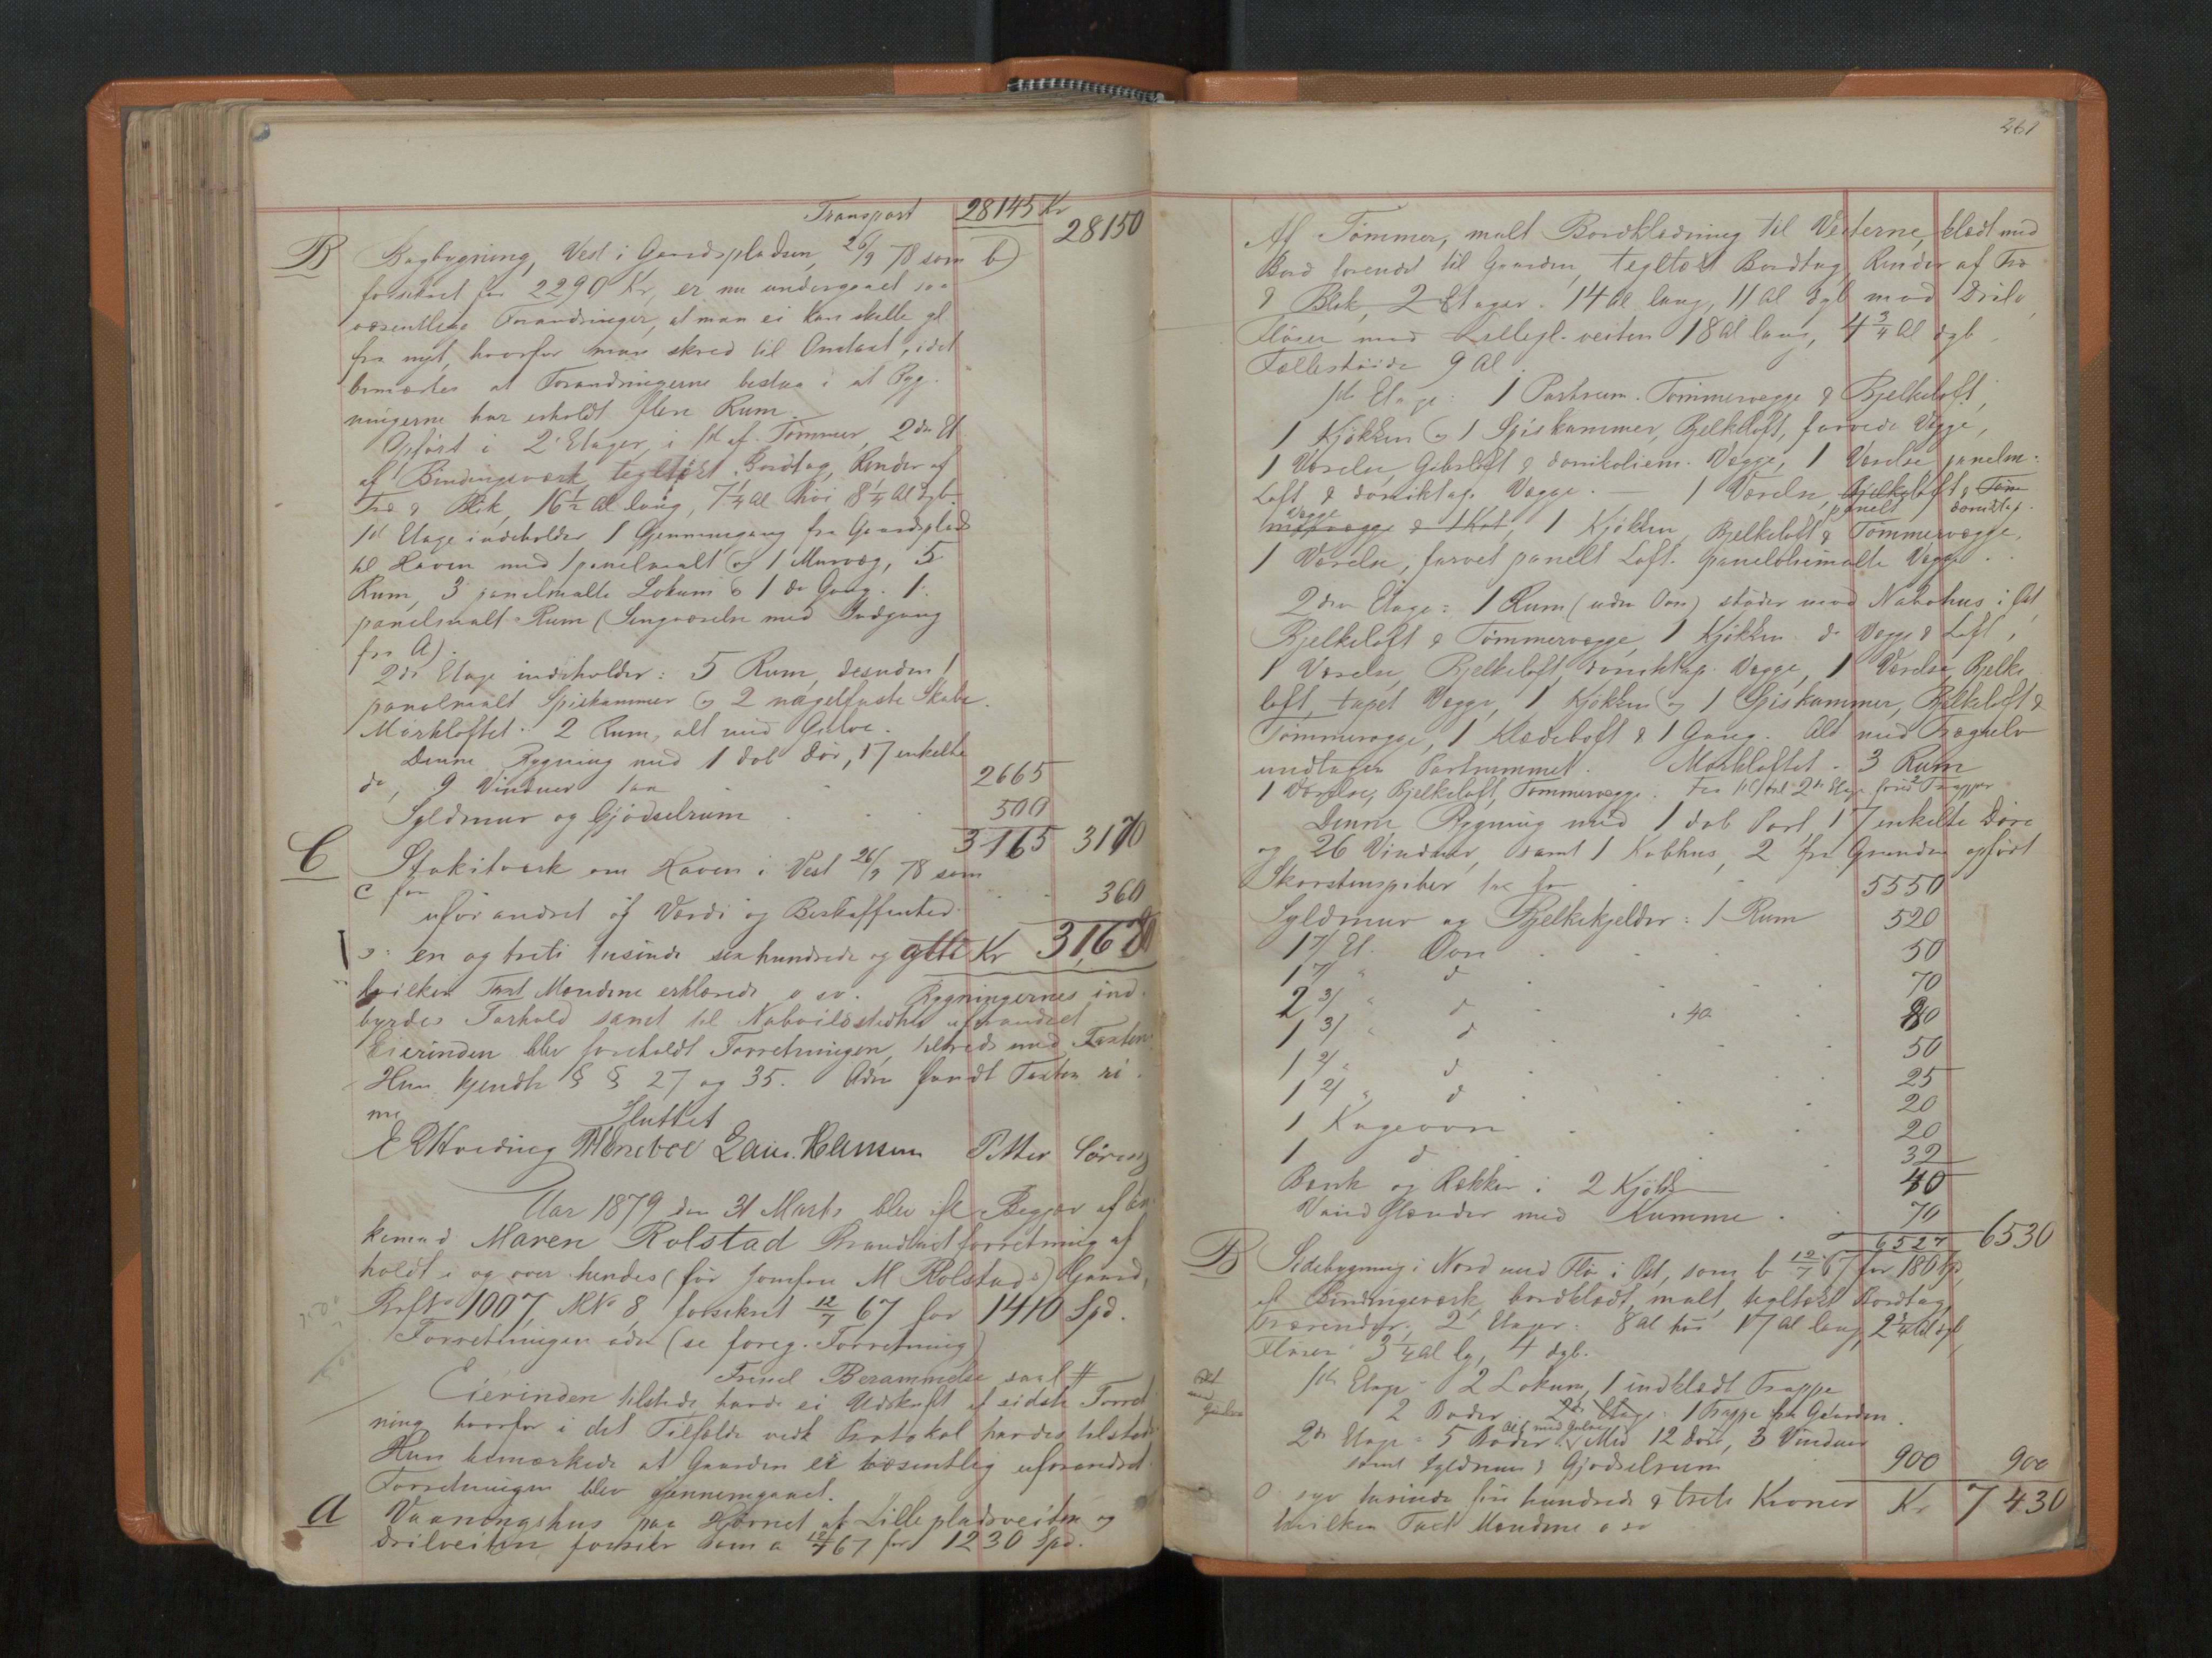 Transport 28145 Kr
28150
B Bagbygning, Vest i Gaardspladsen, 26/9 78 som b)
forsikret for 2290 Kr, er nu undergaaet saa
væsentlige Forandringer, at man ei kan skille gl
fra nyt, hvorfor man skred til Omtaxt, idet
bemærkes at Forandringerne bestaa i at Byg-
ningerne har erholdt flere Rum.
Opført i 2 Etager, i 1st af Tømmer, 2den Et
af Bindingsværk, tegltækt Bordtag, Render af
Træ & Blik, 16 1/2 Al lang, 7 1/4 Al høi 8 1/4 Al dyb.
1st Etage indeholder 1 Gjennemgang fra Gaardsplads
til Haven med 1 panelmalt og 1 Murvæg, 5
Rum, 3 panelmalte Lokum & 1 do Gang. 1
panelmalt Rum (Sengeværelse med Indgang
fra A).
2de Etage indeholder: 5 Rum, desuden 1
panelmalt Spiskammer og 2 nagelfaste Skabe.
Mørkloftet: 2 Rum, alt med Gulve.
Denne Bygning med 1 dob Dør, 17 enkelte
do, 9 Vinduer 2665
Syldmur og Gjødselrum 500
3165 3170
C Stakitværk om Haven i Vest 26/9 78 som
c for 360
uforandret af Værdi og Beskaffenhed
o: en og treti tusinde sex hundrede og otti Kr 31,680
hvilken Taxt Mændene erklærede o sv. Bygningernes ind-
byrdes Forhold samt til Naboildsteder uforandret
Eierinden blev foreholdt Forretningen, tilfreds med Taxten.
Hun kjendte § § 27 og 35. Adm fandt Taxten ri-
me
Sluttet
Lau. Hansen Petter
Aar 1879 den 31 Marts blev efter Begjær af En-
kemad. Maren Rolstad Brandtaxtforretning af-
holdt i og over hendes (før Jomfru M Rolstads) Gaard,
BrfNo 1007, MNo 8, forsikret 12/7 67 for 1410 Spd.
Forretningen adm (se foreg. Forretning)
Eierinden tilstede, havde ei Udskrift af sidste Forret-
ning, hvorfor i det Tilfælde vedk Protokol havdes tilstede
Hun bemærkede at Gaarden ei væsentlig uforandret.
Forretningen blev gjennemgaaet.
A Vaaningshus paa Hjørnet af Lillepladsveiten og
Drilveiten, forsikr som a 12/7 67 for 1230 Spd.
261
Af Tømmer, malt Bordklædning til Veiterne, klædt med
Bord forøvrigt til Gaarden, tegltækt Bordtag, Render af Træ
& Blik, 2 Etager. 14 Al lang, 11 Al dyb mod Drilv,
Fløien mod Lillepl.veiten 18 Al lang, 4 3/4 Al dyb.
Fælleshøide 9 Al.
1ste Etage: 1 Portrum. Tømmervægge & Bjelkeloft,
1 Kjøkken og 1 Spiskammer, Bjelkeloft, farvede Vægge,
1 Værelse, Gibsloft & Vægge, 1 Værelse panelm.
Loft & Vægge. — 1 Værelse, Bjelkeloft &
1 Kjøkken, Bjelkeloft & Tømmervægge,
1 Værelse, farvet panelt Loft. Vægge.
2den Etage: 1 Rum (uden Ovn) støder mod Nabohus i Øst,
Bjelkeloft & Tømmervægge, 1 Kjøkken do Vægge & Loft,
1 Værelse, Bjelkeloft, Vægge, 1 Værelse, Bjelke-
loft, tapet Vægge, 1 Kjøkken og 1 Spiskammer, Bjelkeloft &
Tømmervægge, 1 Klædeloft & 1 Gang. Alt med Trægulv
undtagen Portrummet. Mørkloftet - 3 Rum
1 Værelse, Bjelkeloft, Tømmervægge. Fra 1st til 2den Etage fører 2 Trapper
Denne Bygning med 1 dob Port, 17 enkelte Døre
og 26 Vinduer, samt 1 Kobhus, 2 fra Grunden opført
Skorstenspiber 5550
Syldmur og Bjelkekjelder: 1 Rum 520
1 7/ Et. Ovn 50
1 7/ " d 70
2 3/ " d 40 80
1 3/ " d 50
1 2/ " d 25
1 2/ " d 20
1 Kageovn 20
1 d 32
Bænk og Rækker i 2 Kjøkk 40
Vand med Kumme 70
6527 6530
B Sidebygning i Nord med Fløi i Øst, som b 12/7 67 for 180 Spd,
af Bindingsværk, bordklædt, malt, tegltækt Bordtag,
Trærender, 2 Etager: 8 Al høi 17 Al lang, 2 3/4 Al dyb,
Fløien 3 1/4 Al lg, 4 dyb.
1ste Etage - 2 Lokum, 1 indklædt Trappe
2 Boder 2de Etage: 1 Trappe fra Gaarden.
2de Etage - 5 Boder Alt med Gulve Med 12 Døre, 3 Vinduer
samt Syldmur & Gjødselrum 900 900
o syv tusinde fire hundrede & treti Kroner Kr 7430
hvilken Taxt Mændene o sv